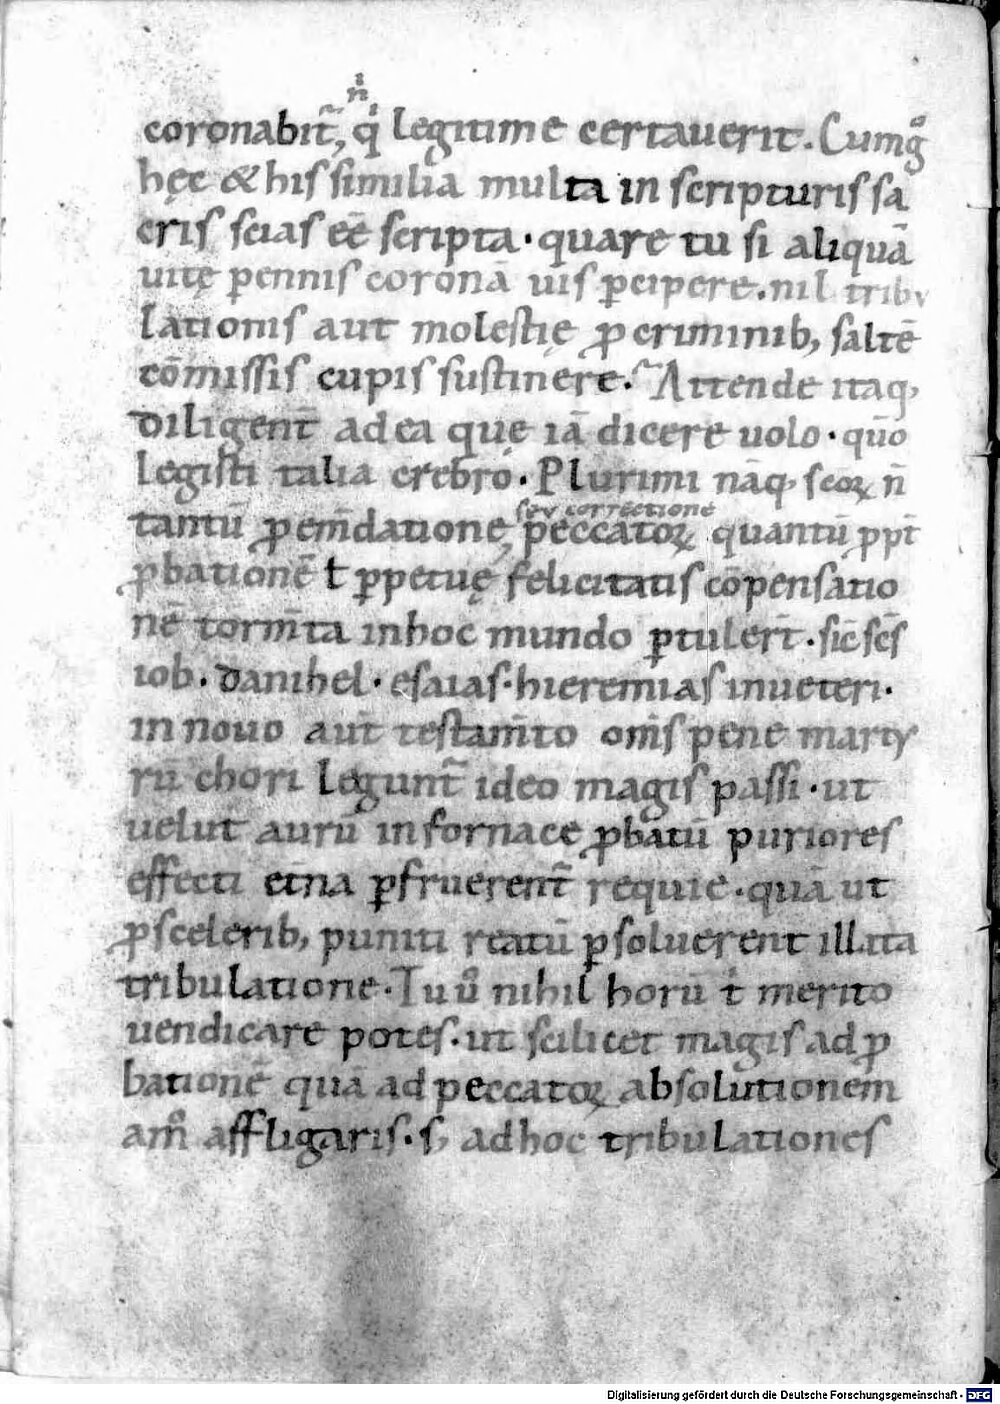 n̄ı
coronabit᷑, qͥ legitime certauerit. Cumqͦ
hęc & his similia multa in scripturis sa
cris scias eē scripta. quare tu si aliquā
uitę p̄ennis coronā uis p̱cipere. nil tribu
lationis aut molestię ꝓ criminib; saltē
cōmissis cupis sustinere. Attende itaq;
diligent̄ ad ea quę iā dicere uolo. quō
legisti talia crebro. Plurimi nāq; scōꝝ n̄
seu correctione
tantū ꝓ em̄datione, peccatoꝝ quantū ꝓpt̄
ꝓbationē ł ꝑpetuę felicitatis cōpensatio
nē torm̄ta in hoc mundo ꝑtuler̄t. sic̄ sc̄s
iob. danihel. esaias. hieremias in ueteri.
in nouo aut̄ testam̄to om̄s pene marty
rū chori legunt᷑ ideo magis passi. ut
uelut aurū in fornace ꝓbatū puriores
effecti et̄na ꝑfruerent᷑ requie. quā ut
ꝓ scelerib; puniti reatū ꝑsoluerent illata
tribulatione. Tu ů nihil horū tͥ merito
uendicare potes. ut scilicet magis ad ꝓ
bationē quā ad peccatoꝝ absolutionem
am̊ affligaris. s; ad hoc tribulationes
Digitalisierung gefördert durch die Deutsche Forschungsgemeinschaft - DFG